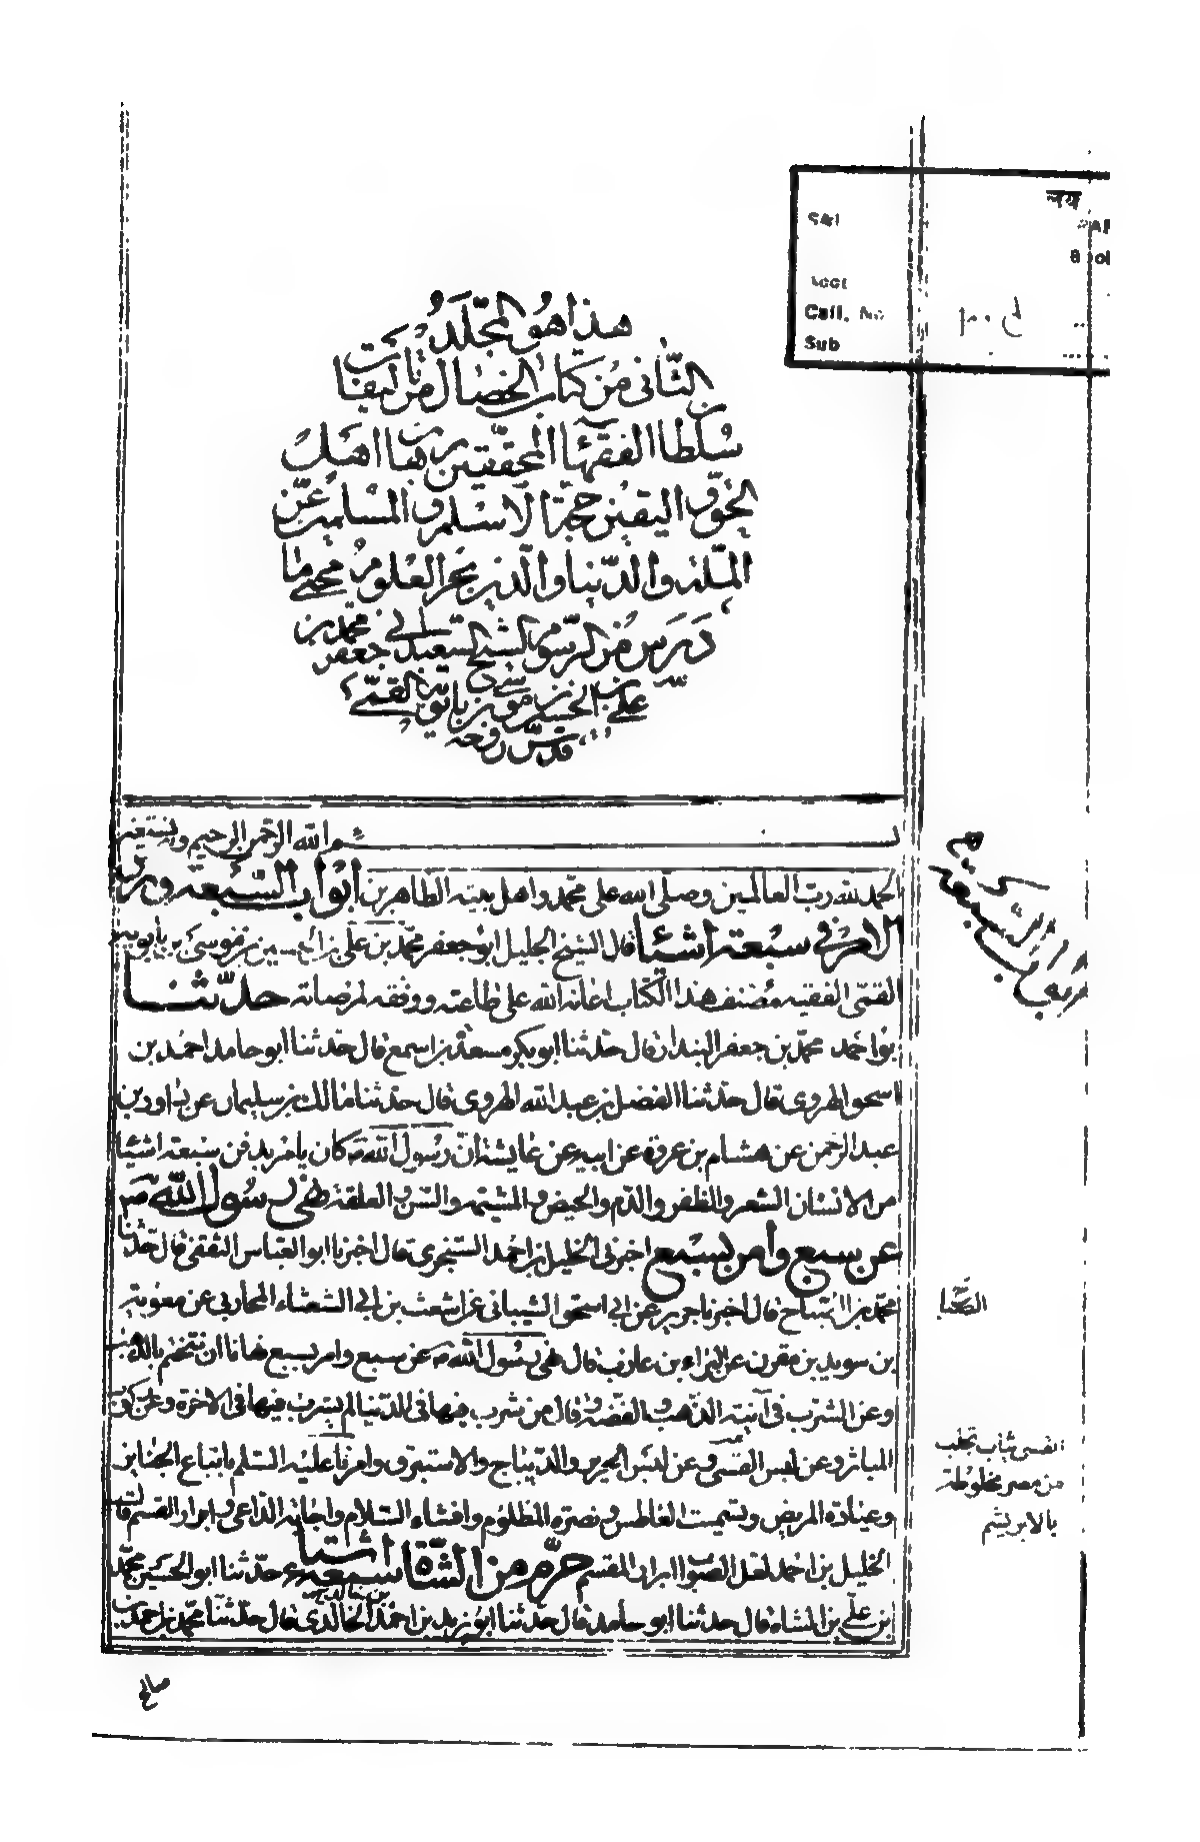 लय
Call. No
Sub
هذا هو المجلد
الثانی من کتاب الخصال من تألیفات
سلطان الفقهاء المحققین برهان اهل
الحق و الیقین حجة الاسلام و المسلمین عز
الملة و الدنیا و الدین بحر العلوم محیی ما
درس من الرسوم الشیخ السعید ابی جعفر محمد بن
علی بن الحسین بن موسی بن بابویه القمی
قدس رمسه
بسم الله الرحمن الرحیم و به نستعین
الحمد لله رب العالمین وصلی الله علی محمد و اهل بیته الطاهرین ابواب السبعة ورد
الامر فی سبعة اشیاء قال الشیخ الجلیل ابو جعفر محمد بن علی بن الحسین بن موسی بن بابویه
القمی الفقیه مصنف هذا الکتاب اعانه الله علی طاعته ووفقه لمرضاته حدثنا
ابو احمد محمد بن جعفر البندار قال حدثنا ابو بکر مسعدة بن اسمع قال حدثنا ابو حامد احمد بن
اسحق الهروی قال حدثنا الفضل بن عبد الله الهروی قال حدثنا مالک بن سلیمان عن داود بن
عبد الرحمن عن هشام بن عروة عن ابیه عن عایشة ان رسول الله ص کان یامر بدفن سبعة اشیاء
من الانسان الشعر و الظفر و الدم و الحیض و المشیمة و السن و العلقة نهی رسول الله ص
عن سبع وامر بسبع اخبرنی الخلیل بن احمد السنجری قال اخبرنا ابو العباس الثقفی قال حدثنا
محمد بن الصباح قال اخبرنا جریر عن ابی اسحق الشیبانی عن اشعث بن ابی الشعثاء المحاربی عن معویة
بن سوید بن مقرن عن البراء بن عازب قال نهی رسول الله ص عن سبع وامر بسبع نهانا ان نتختم بالذهب
وعن الشرب فی آنیة الذهب و الفضة و قال من شرب فیها فی الدنیا لم یشرب فیها فی الاخرة وعن رکوب
المیاثر وعن لبس القسی و عن لبس الحریر والدیباج والاستبرق وامرنا علیه السلم باتباع الجنایز
وعیادة المریض و تسمیت العاطس و نصرة المظلوم وافشاء السلام واجابة الداعی و ابرار القسم قال
الخلیل بن احمد لعل الصواب ابرار المقسم حرم من الشاة سبعة اشیاء حدثنا ابو الحسین محمد
بن علی بن الشاه قال حدثنا ابو حامد قال حدثنا ابو یزید بن احمد بن خالد الخالدی قال حدثنا محمد بن احمد بن
صالح
ابواب السبعة
الصباح
القسی ثیاب تجلب
من مصر مخلوطة
بالابریشم